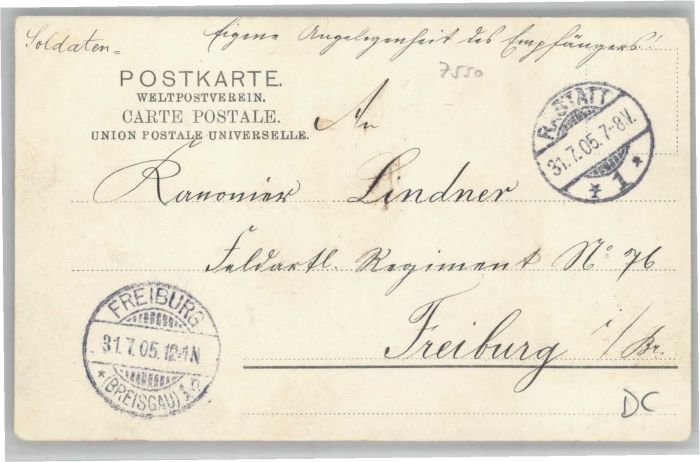 Soldaten= Eigene Angelegenheit des Empfängers!
7550
POSTKARTE.
WELTPOSTVEREIN.
CARTE POSTALE.
UNION POSTALE UNIVERSELLE.
RASTATT
31.7.05.7-8V.
* 1 *
An
Kanonier Lindner
Feldartl. Regiment No 76
Freiburg i/Br.
FREIBURG
31.7.05.12-1N
* (BREISGAU) 1
DC